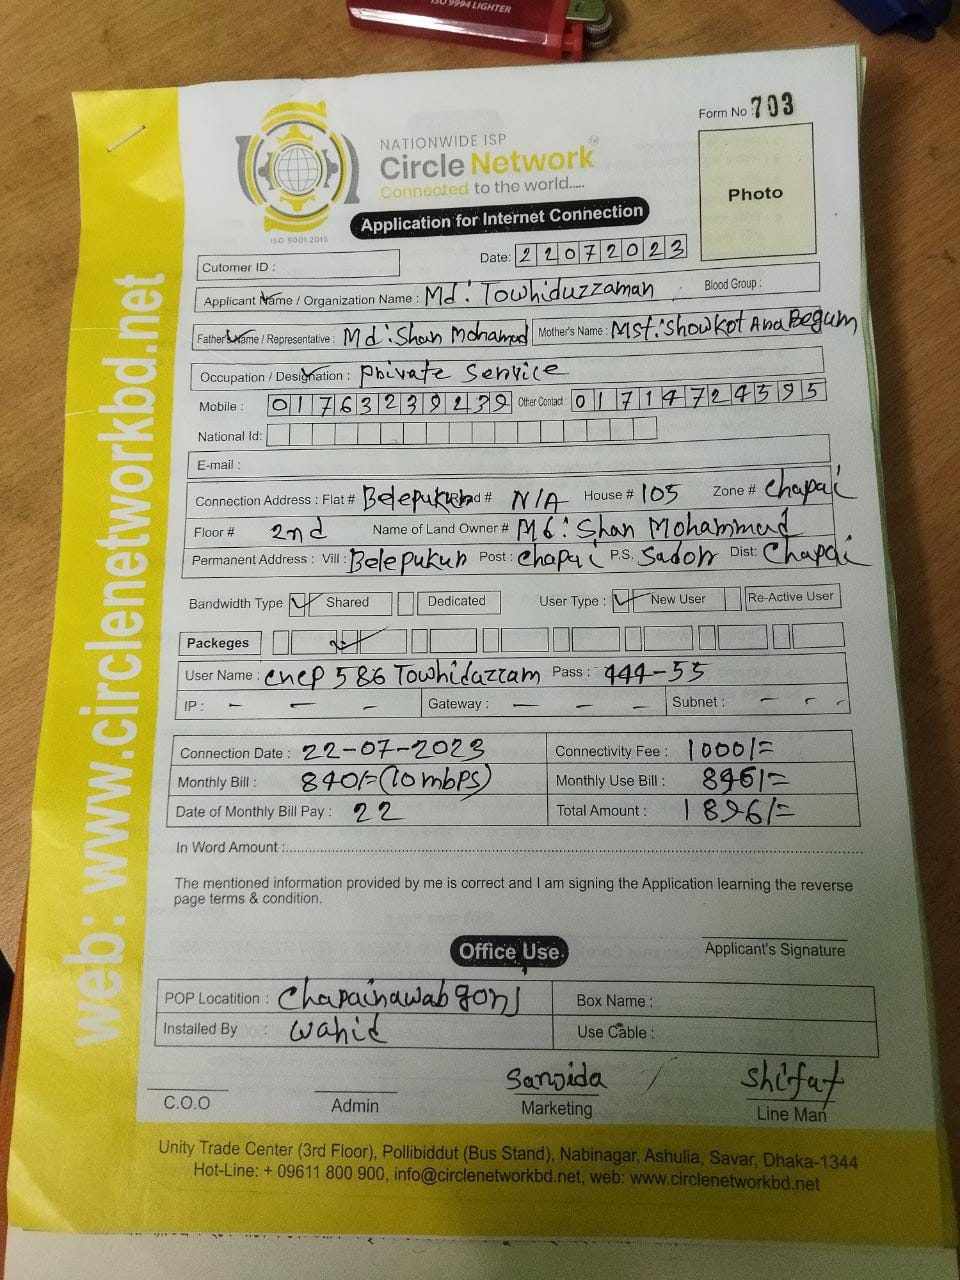 ISO 9994 LIGHTER
Form No : 703
NATIONWIDE ISP
Circle Network
Connected to the world.....
ISO 9001:2015
Application for Internet Connection
Photo
Cutomer ID :
Date: 22072023
Applicant Name / Organization Name : Md: Towhiduzzaman Blood Group :
Father's Name / Representative : Md: Shan Mohamud Mother's Name : Mst: Showkot Ana Begum
Occupation / Designation : Private Service
Mobile : 01763239239 Other Contact : 01714724395
National Id:
E-mail :
Connection Address : Flat # Belepukur Road # N/A House # 105 Zone # Chapai
Floor # 2nd Name of Land Owner # Md: Shan Mohammud
Permanent Address : Vill : Belepukur Post : Chapai P.S. Sador Dist: Chapai
Bandwidth Type Shared Dedicated User Type : New User Re-Active User
Packeges
User Name : cncp 586 Towhiduzzam Pass : 444-55
IP : - - - Gateway : - - - Subnet : - - -
Connection Date : 22-07-2023 Connectivity Fee : 1000/=
Monthly Bill : 840/=(10mbps) Monthly Use Bill : 896/=
Date of Monthly Bill Pay : 22 Total Amount : 1896/=
In Word Amount :
The mentioned information provided by me is correct and I am signing the Application learning the reverse
page terms & condition.
Applicant's Signature
Office Use.
POP Locatition : Chapainawabgonj Box Name :
Installed By : Wahid Use Cable :
Sanjida Shifat
C.O.O Admin Marketing Line Man
Unity Trade Center (3rd Floor), Pollibiddut (Bus Stand), Nabinagar, Ashulia, Savar, Dhaka-1344
Hot-Line: + 09611 800 900, info@circlenetworkbd.net, web: www.circlenetworkbd.net
web: www.circlenetworkbd.net